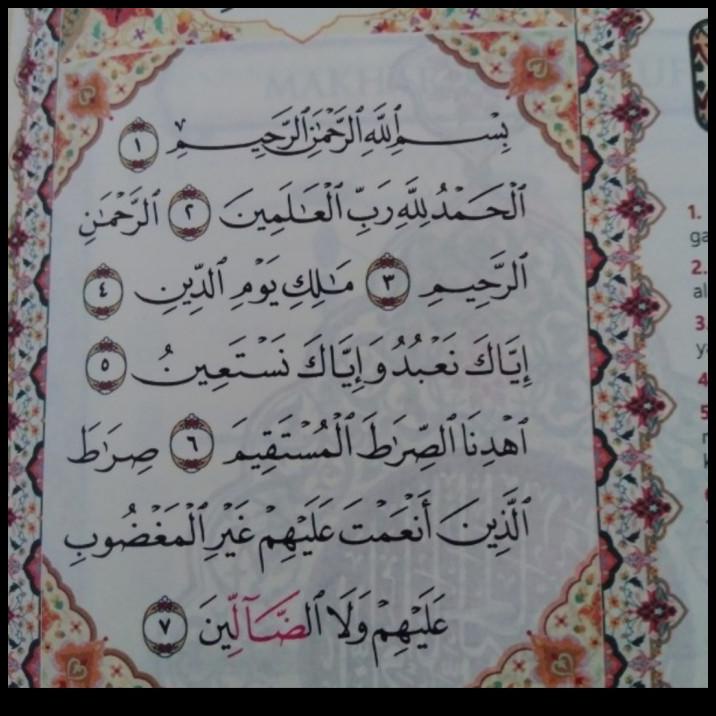 بِسْمِ ٱللَّهِ ٱلرَّحْمَٰنِ ٱلرَّحِيمِ ١
ٱلْحَمْدُ لِلَّهِ رَبِّ ٱلْعَٰلَمِينَ ٢ ٱلرَّحْمَٰنِ
ٱلرَّحِيمِ ٣ مَٰلِكِ يَوْمِ ٱلدِّينِ ٤
إِيَّاكَ نَعْبُدُ وَإِيَّاكَ نَسْتَعِينُ ٥
ٱهْدِنَا ٱلصِّرَٰطَ ٱلْمُسْتَقِيمَ ٦ صِرَٰطَ
ٱلَّذِينَ أَنْعَمْتَ عَلَيْهِمْ غَيْرِ ٱلْمَغْضُوبِ
عَلَيْهِمْ وَلَا ٱلضَّآلِّينَ ٧
1.
ga
2.
al
3.
y
4
5